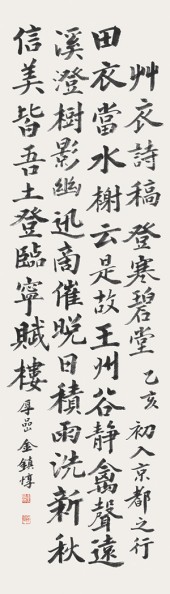 艸衣詩稿 登寒碧堂 乙亥 初入京都之行
田衣當水榭云是故王州谷靜禽聲遠
溪澄樹影幽迅商催晩日積雨洗新秋
信美皆吾土登臨寧賦樓 金鎮惇